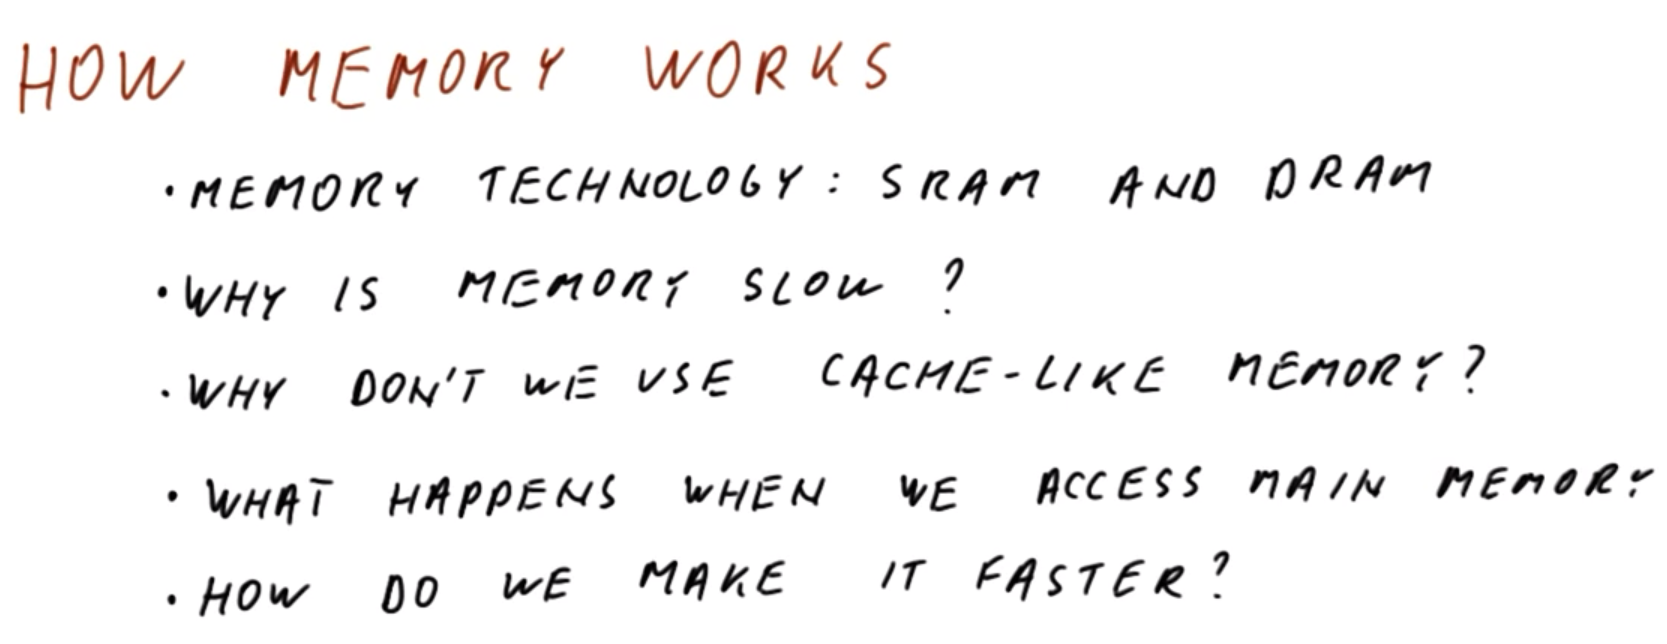 HOW MEMORY WORKS
• MEMORY TECHNOLOGY: SRAM AND DRAM
• WHY IS MEMORY SLOW ?
• WHY DON'T WE USE CACHE-LIKE MEMORY?
• WHAT HAPPENS WHEN WE ACCESS MAIN MEMORY
• HOW DO WE MAKE IT FASTER?